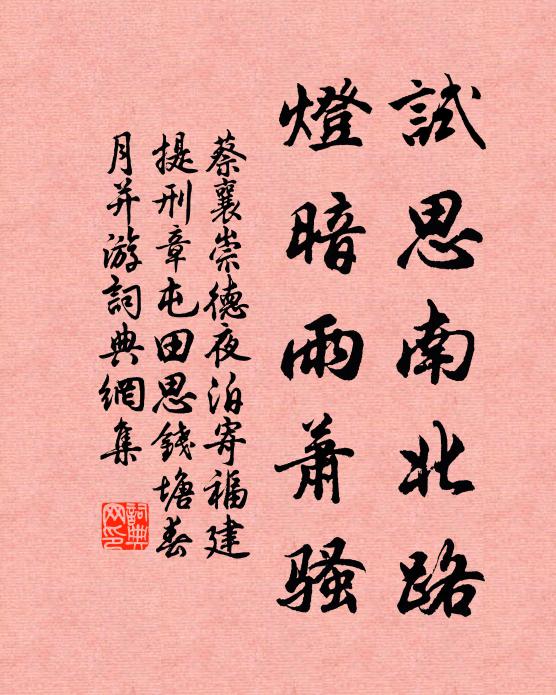 試思南北路
燈暗雨萧骚
蔡襄崇德夜泊寄福建
提刑章屯田思錢塘春
月并游詞典網集
詞典
网印